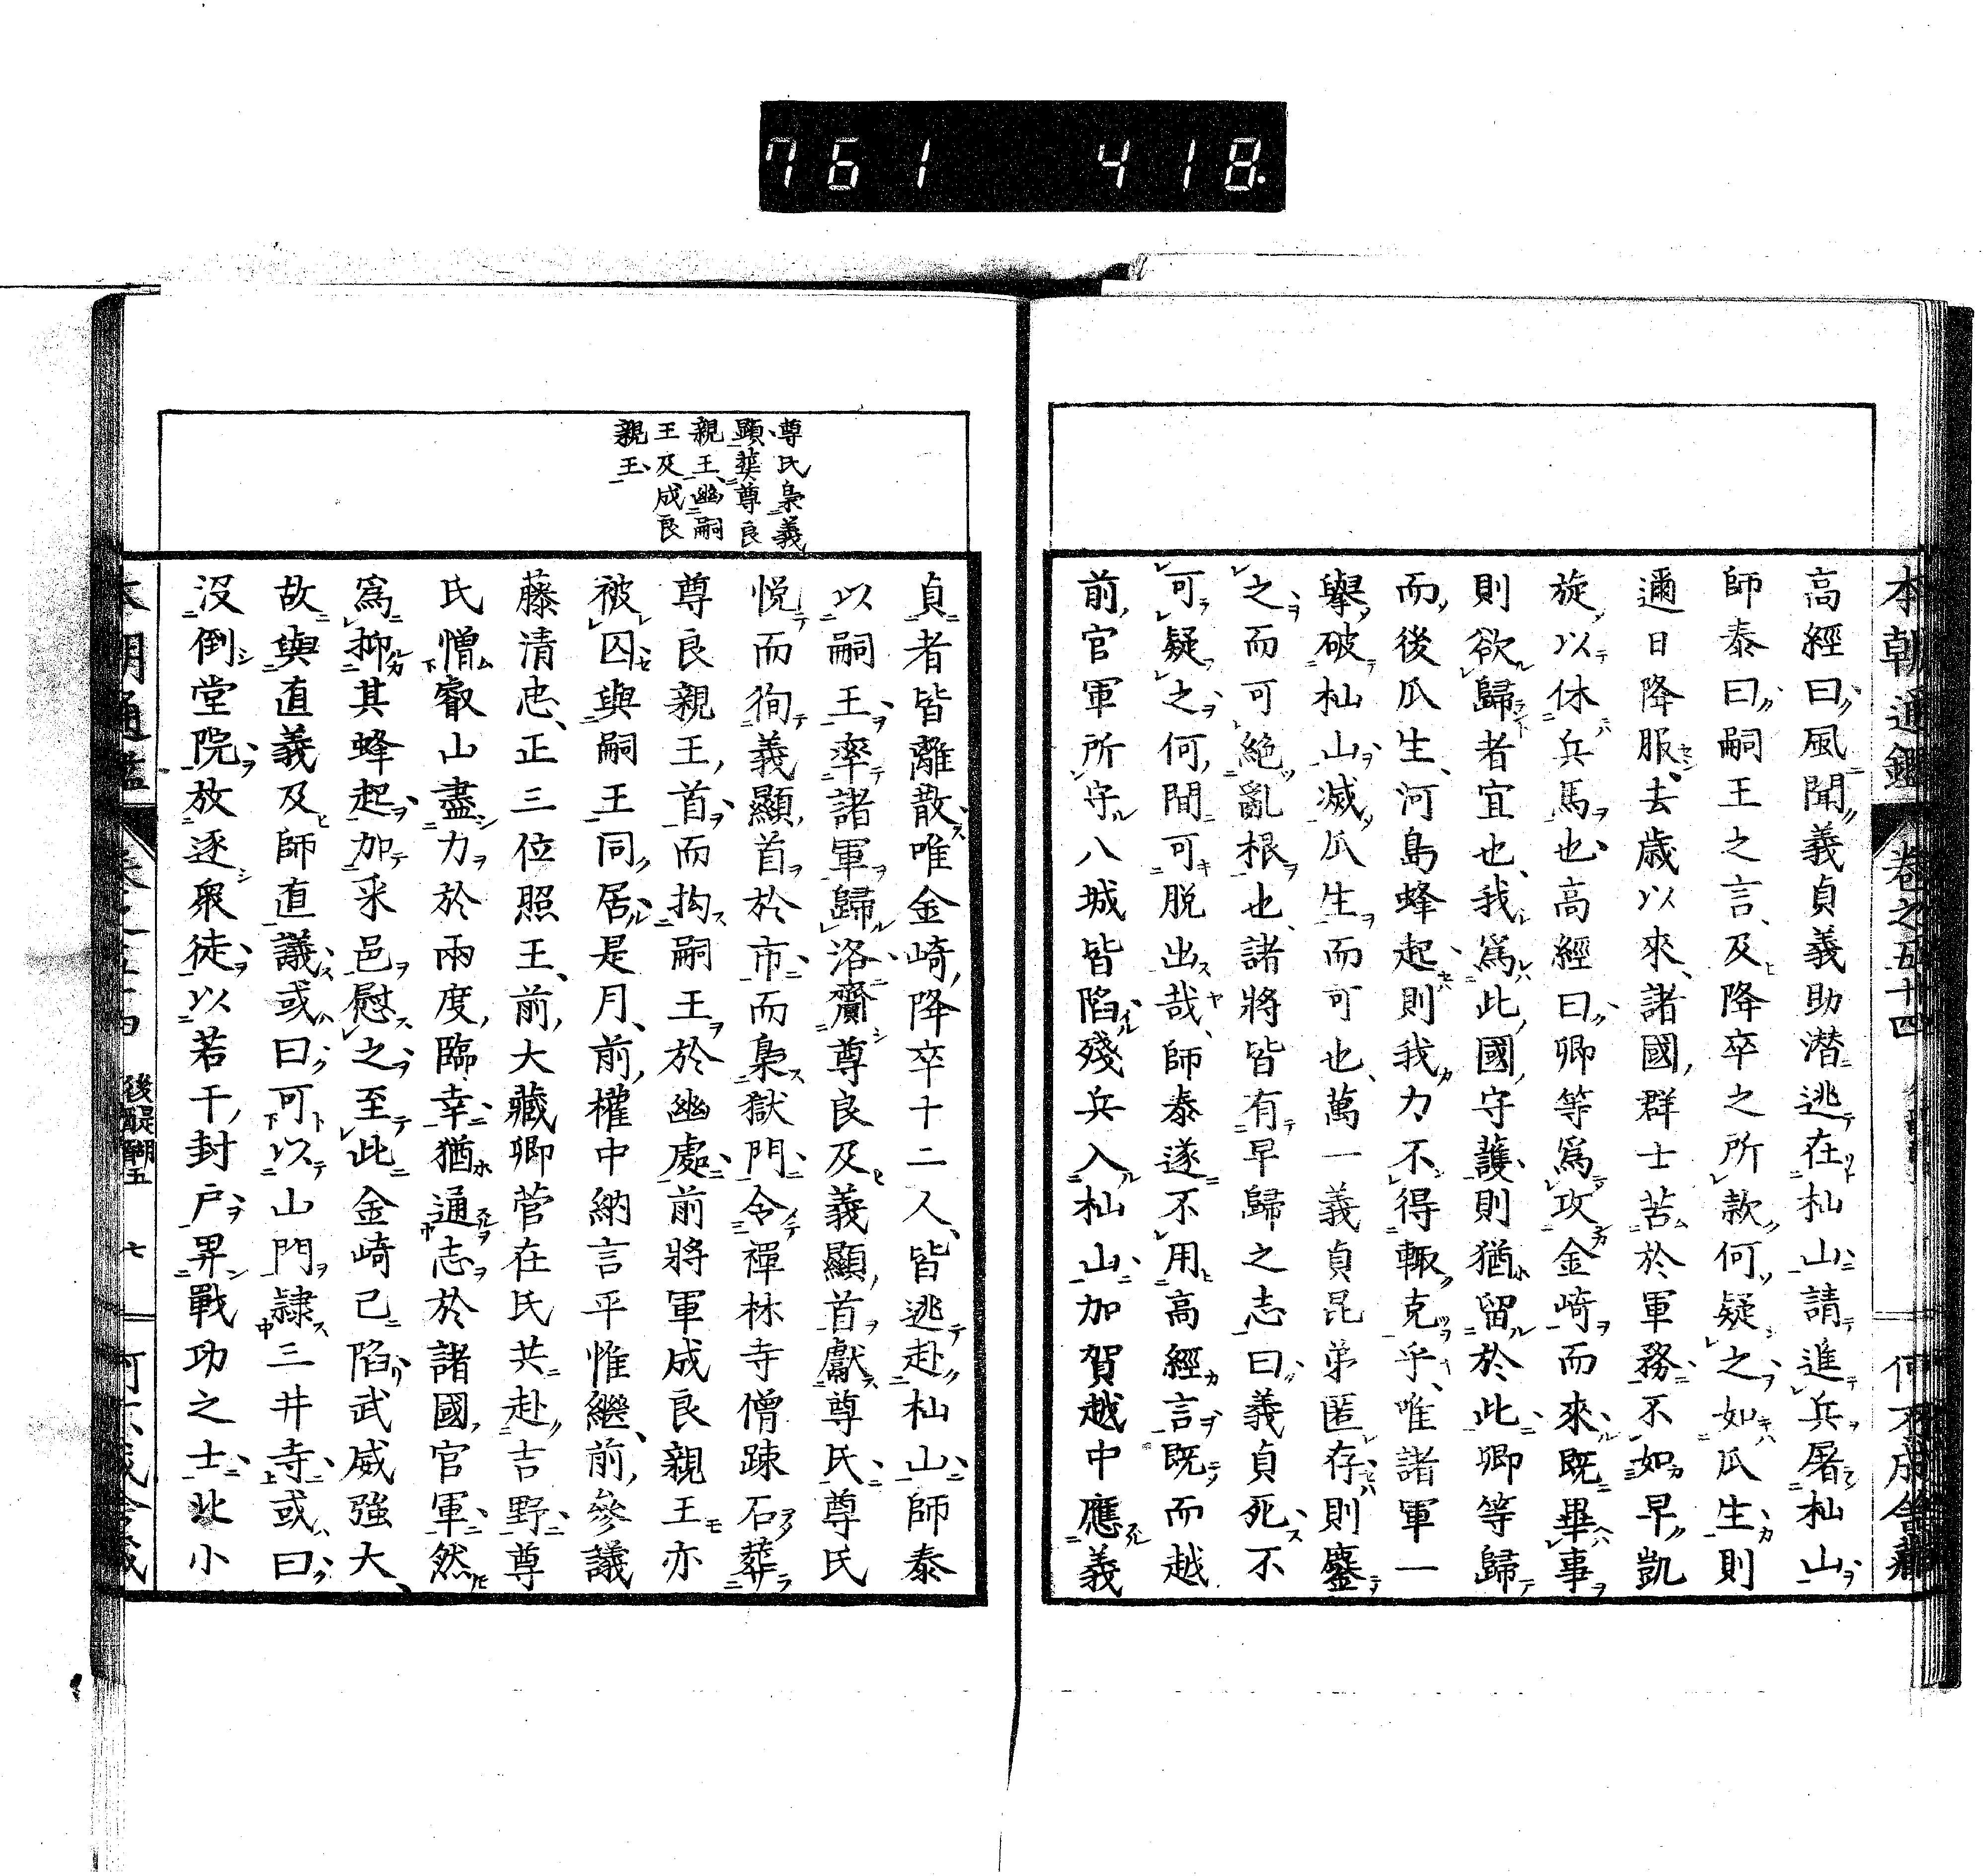 761 418.
本朝通鑑 卷之五十四
高經曰風聞義貞義助潜逃在杣山請進兵屠杣山
師泰曰嗣王之言及降卒之所款何疑之如瓜生則
邇日降服去歳以來諸國群士苦於軍務不如早凱
旋以休兵馬也高經曰卿等爲攻金崎而來既畢事
則欲歸者宜也我爲此國守護則猶留於此卿等歸
而後瓜生河島蜂起則我力不得輙克乎唯諸軍一
擧破杣山滅瓜生而可也萬一義貞昆弟匿存則鏖
之而可絶亂根也諸將皆有早歸之志曰義貞死不
可疑之何間可脱出哉師泰遂不用高經言既而越
前官軍所守八城皆陷殘兵入杣山加賀越中應義
尊氏梟義
顯葬尊良
親王幽嗣
王及成良
親王
貞者皆離散唯金崎降卒十二人皆逃赴杣山師泰
以嗣王率諸軍歸洛齎尊良及義顯首獻尊氏尊氏
悦而徇義顯首於市而梟獄門令禪林寺僧踈石葬
尊良親王首而拘嗣王於幽處前將軍成良親王亦
被囚與嗣王同居是月前權中納言平惟繼前參議
藤清忠正三位照王前大藏卿菅在氏共赴吉野尊
氏憎叡山盡力於兩度臨幸猶通志於諸國官軍然
爲抑其蜂起加釆邑慰之至此金崎已陷武威強大
故與直義及師直議或曰可以山門隷三井寺或曰
没倒堂院放逐衆徒以若干封戸畀戰功之士北小
後醍醐五 七